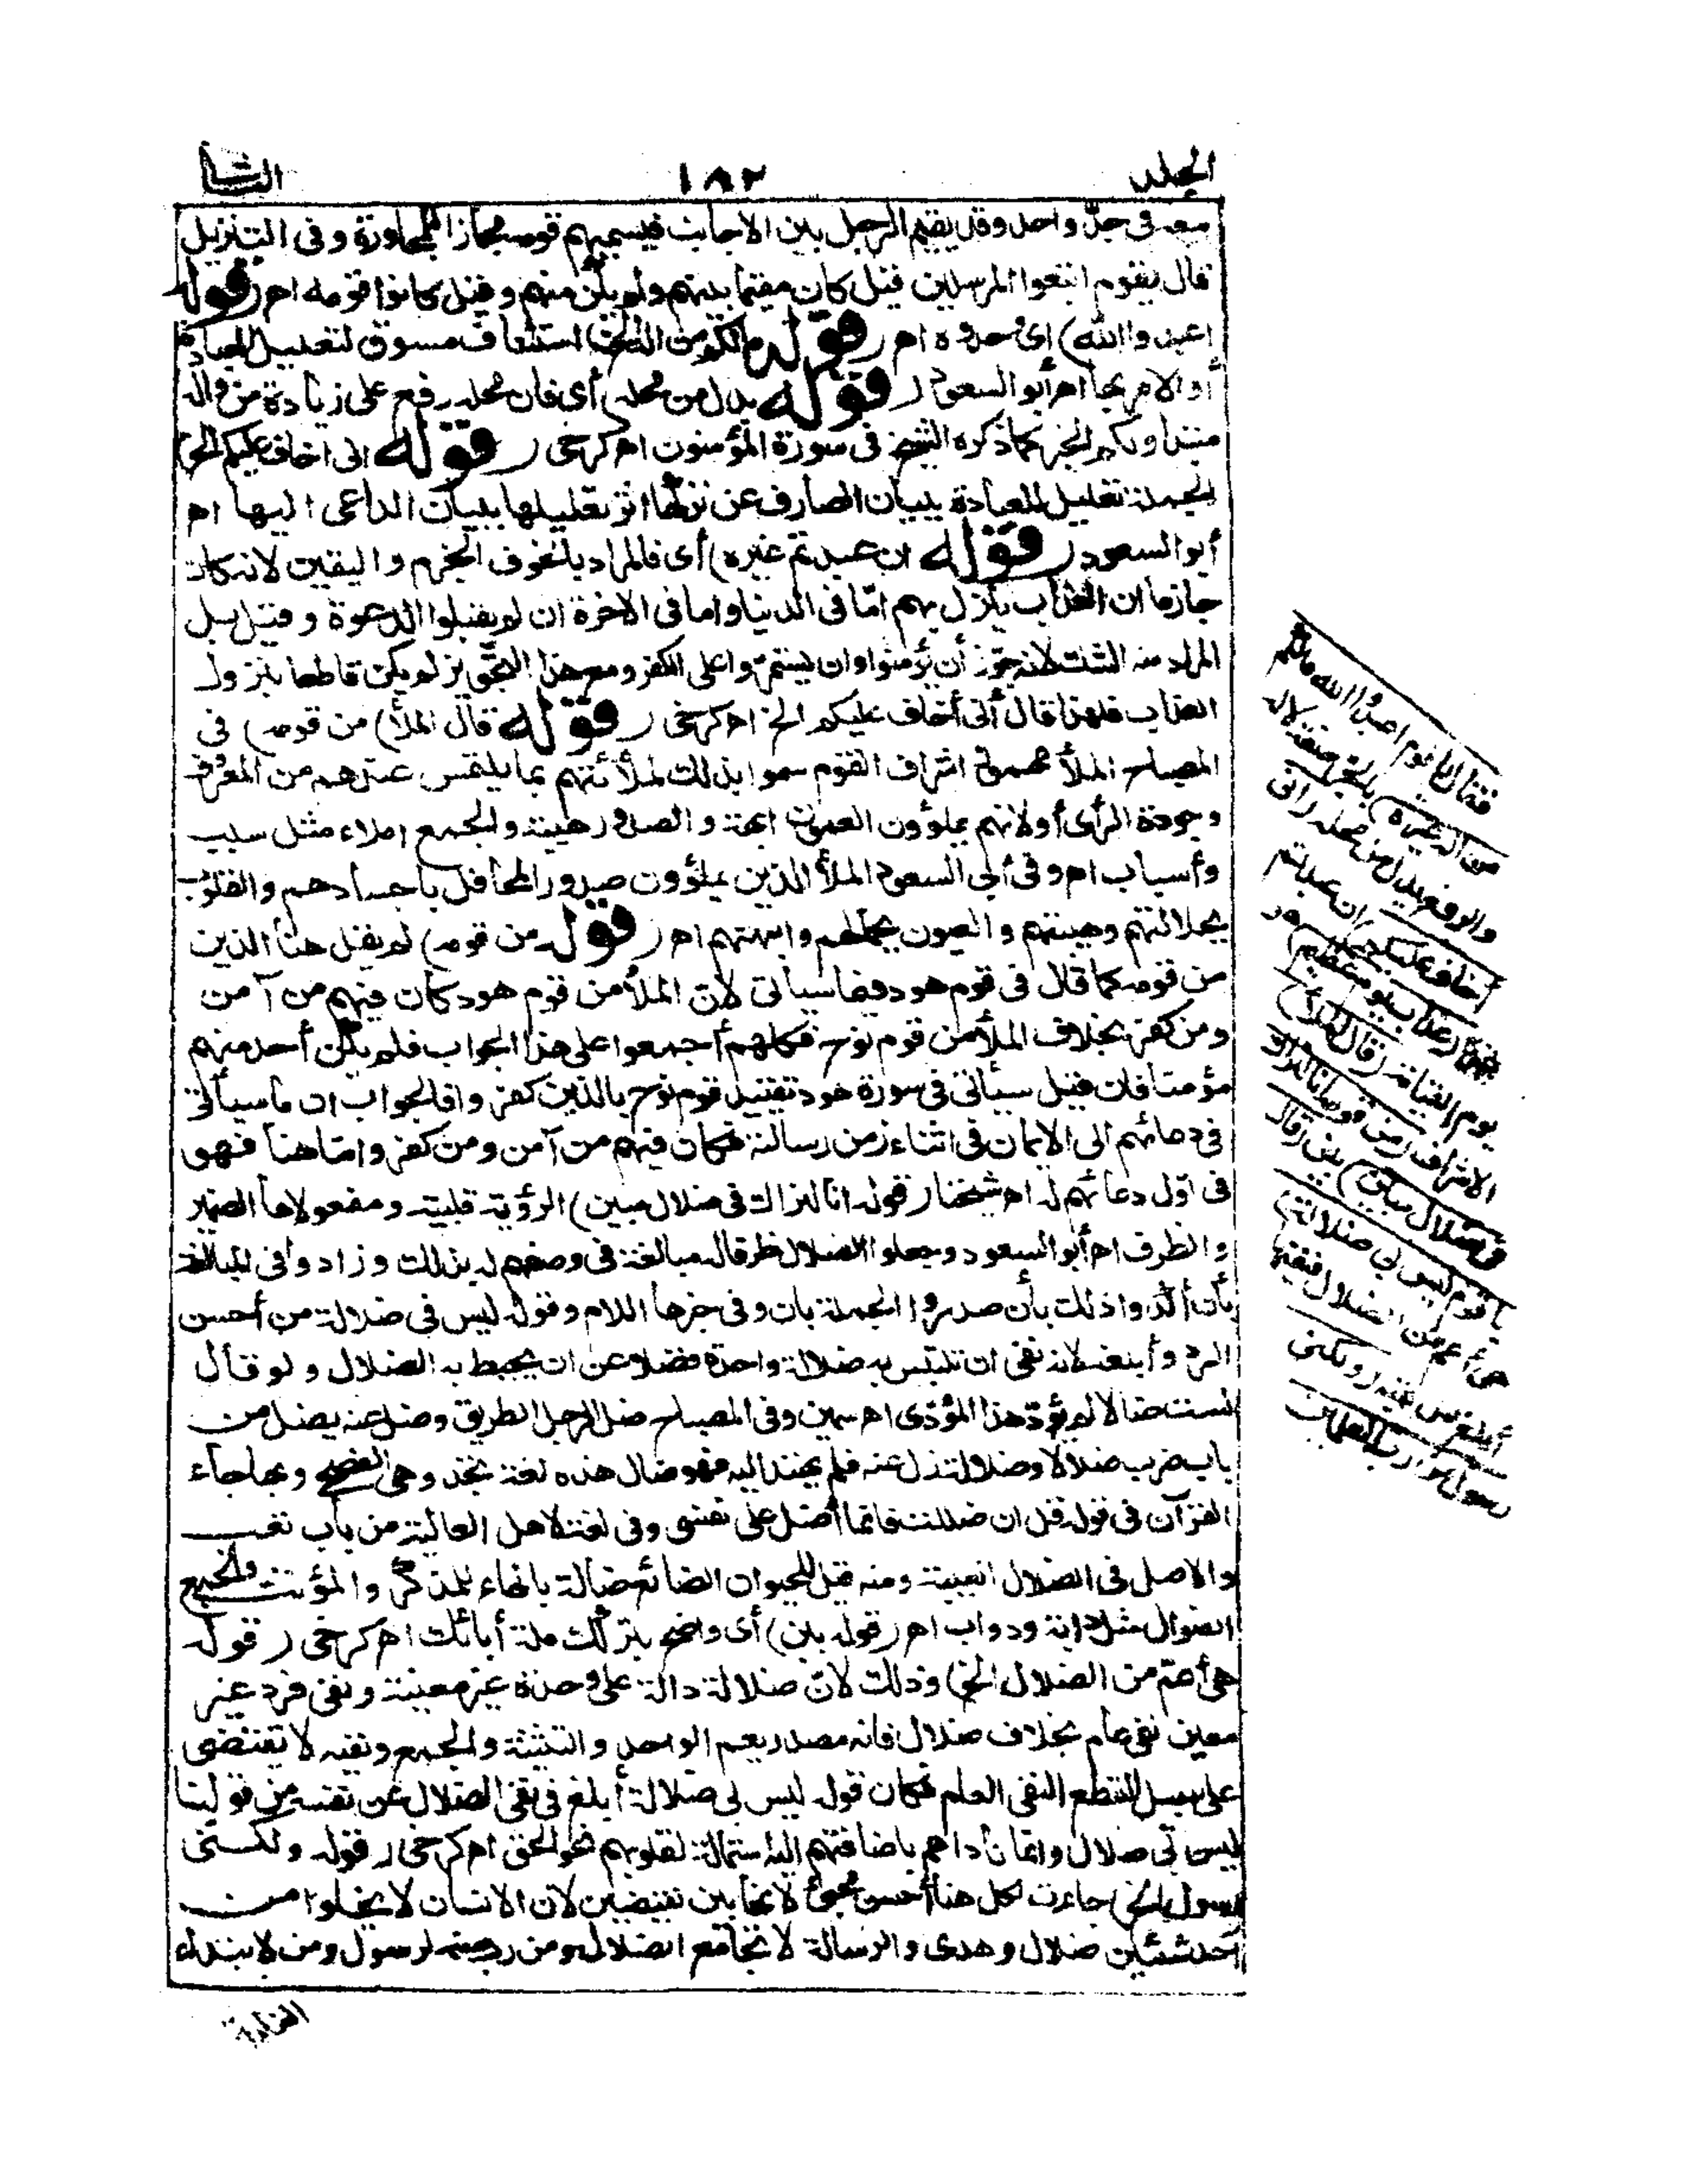 الجلد
١٨٢
الثانى
معه فى جدّ واحد وقد يقيم الرجل بين الاجانب فيسميهم قومه مجازا للمجاورة وفى التنزيل
قال يقوم اتبعوا المرسلين قيل كان مقيما بينهم ولم يكن منهم وقيل كانوا قومه اه (قوله
اعبدوا الله) اى وحدوه اه (قوله مالكم من اله الخ) استئناف مسوق لتعليل العبادة
أو الامر بها اه أبو السعود (قوله بدل من محله) أى فان محله رفع على زيادة من واله
مبتدا ولكم الخبر كما ذكره الشيخ فى سورة المؤمنون اه كرخى (قوله انى اخاف عليكم الخ)
الجملة تعليل للعبادة ببيان الصارف عن تركها اثر تعليلها ببيان الداعى اليها اه
أبو السعود (قوله ان عبدتم غيره) أى فالمراد بالخوف الجزم واليقين لانه كان
جازما ان العذاب ينزل بهم امّا فى الدنيا واما فى الاخرة ان لم يقبلوا الدعوة وقيل بل
المراد منه الشك لانه جوّز أن يؤمنوا وان يستمرّوا على الكفر ومع هذا التجويز لم يكن قاطعا بنزول
العذاب فلهذا قال أنى أخاف عليكم الخ اه كرخى (قوله قال الملأ) من قومه) فى
المصباح الملأ مهموز اشراف القوم سموا بذلك لملأئتهم بما يلتمس عندهم من المعروف
وجودة الرأى أو لانهم يملؤون العيون ابهة والصدور هيبة والجمع املاء مثل سبب
وأسباب اه وفى أبى السعود الملأ الذين يملؤون صدور المحافل بأجسادهم والقلوب
بجلالتهم وهيبتهم والعيون بجمالهم وابهتهم اه (قوله من قومه) لم يقل هنا الذين
من قومه كما قال فى قوم هود فيما سيأتى لانّ الملأ من قوم هود كان فيهم من آمن
ومن كفر بخلاف الملأ من قوم نوح فكلهم أجمعوا على هذا الجواب فلم يكن أحد منهم
مؤمنا فان قيل سيأتى فى سورة هود تقييد قوم نوح بالذين كفروا فالجواب ان ما سيأتى
فى دعائهم الى الايمان فى اثناء زمن رسالته فكان فيهم من آمن ومن كفر وامّا هنا فهو
فى اوّل دعائهم له اه شيخنا (قوله انا لنراك فى ضلال مبين) الرؤية قلبية ومفعولاها الضمير
والظرف اه أبو السعود وجعلوا الضلال ظرفا له مبالغة فى وصفهم له بذلك وزادوا فى المبالغة
بأن أكّدوا ذلك بأن صدروا الجملة بان وفى خبرها اللام وقوله ليس فى ضلالة من أحسن
الردّ وأبلغه لانه نفى ان تلتبس به ضلالة واحدة فضلا عن ان يحيط به الضلال ولو قال
لست ضالا لم يؤدّ هذا المؤدّى اه سمين وفى المصباح ضل الرجل الطريق وضل عنه يضل من
باب ضرب ضلالا وضلالة زل عنه فلم يهتد اليه فهو ضال هذه لغة نجد وهى الفصحى وبها جاء
القرآن فى قوله قل ان ضللت فانّما أضل على نفسى وفى لغة لاهل العالية من باب تعب
والاصل فى الضلال الغيبة ومنه قيل للحيوان الضائع ضالة بالهاء للمذكّر والمؤنث والجمع
الضوال مثل دابة ودواب اه (قوله بين) أى واضح بترك ملة أبائك اه كرخى (قوله
هى أعمّ من الضلال الخ) وذلك لانّ ضلالة دالة على وحدة غير معينة ونفى فرد غير
معين نفى عام بخلاف ضلال فانه مصدر يعم الواحد والتثنية والجمع ونفيه لا تقتضى
على سبيل القطع النفى العام فكان قوله ليس بى ضلالة أبلغ فى نفى الضلال عن نفسه من قولنا
ليس بى ضلال وانما ناداهم باضافتهم اليه استمالة لقلوبهم نحو الحق اه كرخى (قوله ولكنى
رسول الخ) جاءت لكن هنا أحسن مجئ لانها بين نقيضين لان الانسان لا يخلوا من
أحد شيئين ضلال وهدى والرسالة لا تجامع الضلال ومن رب صفة لرسول ومن لابتداء
فقال يا قوم اعبدوا الله مالكم
من اله غيره) بالجر صفة لاله
والرفع بدل من محله (انى
اخاف عليكم) ان عبدتم
غيره (عذاب يوم عظيم) هو
يوم القيامة (قال الملأ)
الاشراف (من قومه انا لنراك
فى ضلال مبين) بين (قال
يا قوم ليس بى ضلالة)
هى أعم من الضلال فنفيها
أبلغ من نفيه (ولكنى
رسول من رب العالمين
الغاية